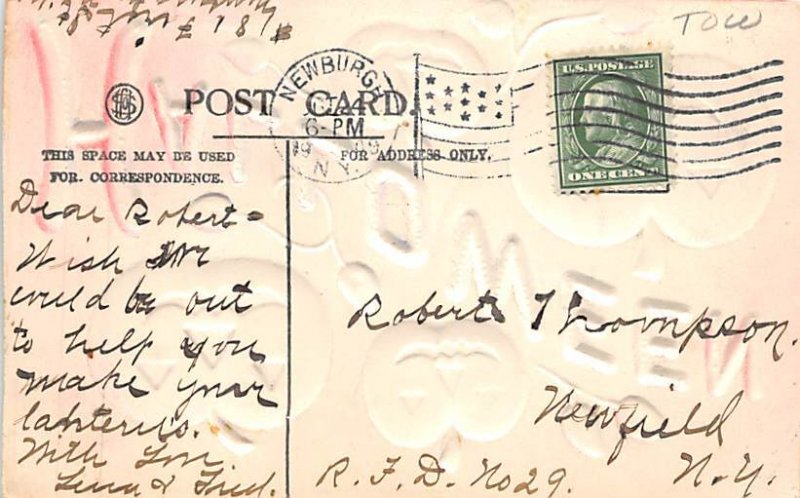 TOW
NEWBURGH
6-PM
N.Y.
U.S. POSTAGE
ONE CENT
POST CARD.
THIS SPACE MAY BE USED
FOR CORRESPONDENCE.
FOR ADDRESS ONLY.
Dear Robert=
Wish we
could be out
to help you
make your
lanterns.
With Love
Lena & Fred.
Robert Thompson.
Newfield
N.Y.
R.F.D. No 29.